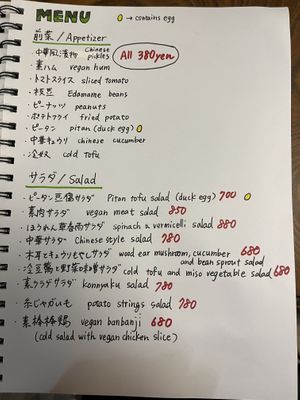 MENU → contains egg
前菜 / Appetizer
All 380yen
・中華風漬物 Chinese pickles
・素ハム vegan hum
・トマトスライス sliced tomato
・枝豆 Edamame beans
・ピーナッツ peanuts
・ポテトフライ fried potato
・ピータン pitan (duck egg)
・中華キュウリ chinese cucumber
・冷奴 cold tofu
サラダ / Salad
・ピータン豆腐サラダ Pitan tofu salad (duck egg) 700
・素肉サラダ vegan meat salad 850
・ほうれん草春雨サラダ spinach & vermicelli salad 880
・中華サラダ Chinese style salad 780
・木耳ときゅうりともやしサラダ wood ear mushroom, cucumber and bean sprout salad 680
・冷豆腐と野菜の味噌サラダ cold tofu and miso vegetable salad 680
・素クラゲサラダ konnyaku salad 780
・糸じゃがいも potato strings salad 780
・素棒棒鶏 vegan banbanji 680
(cold salad with vegan chicken slice)